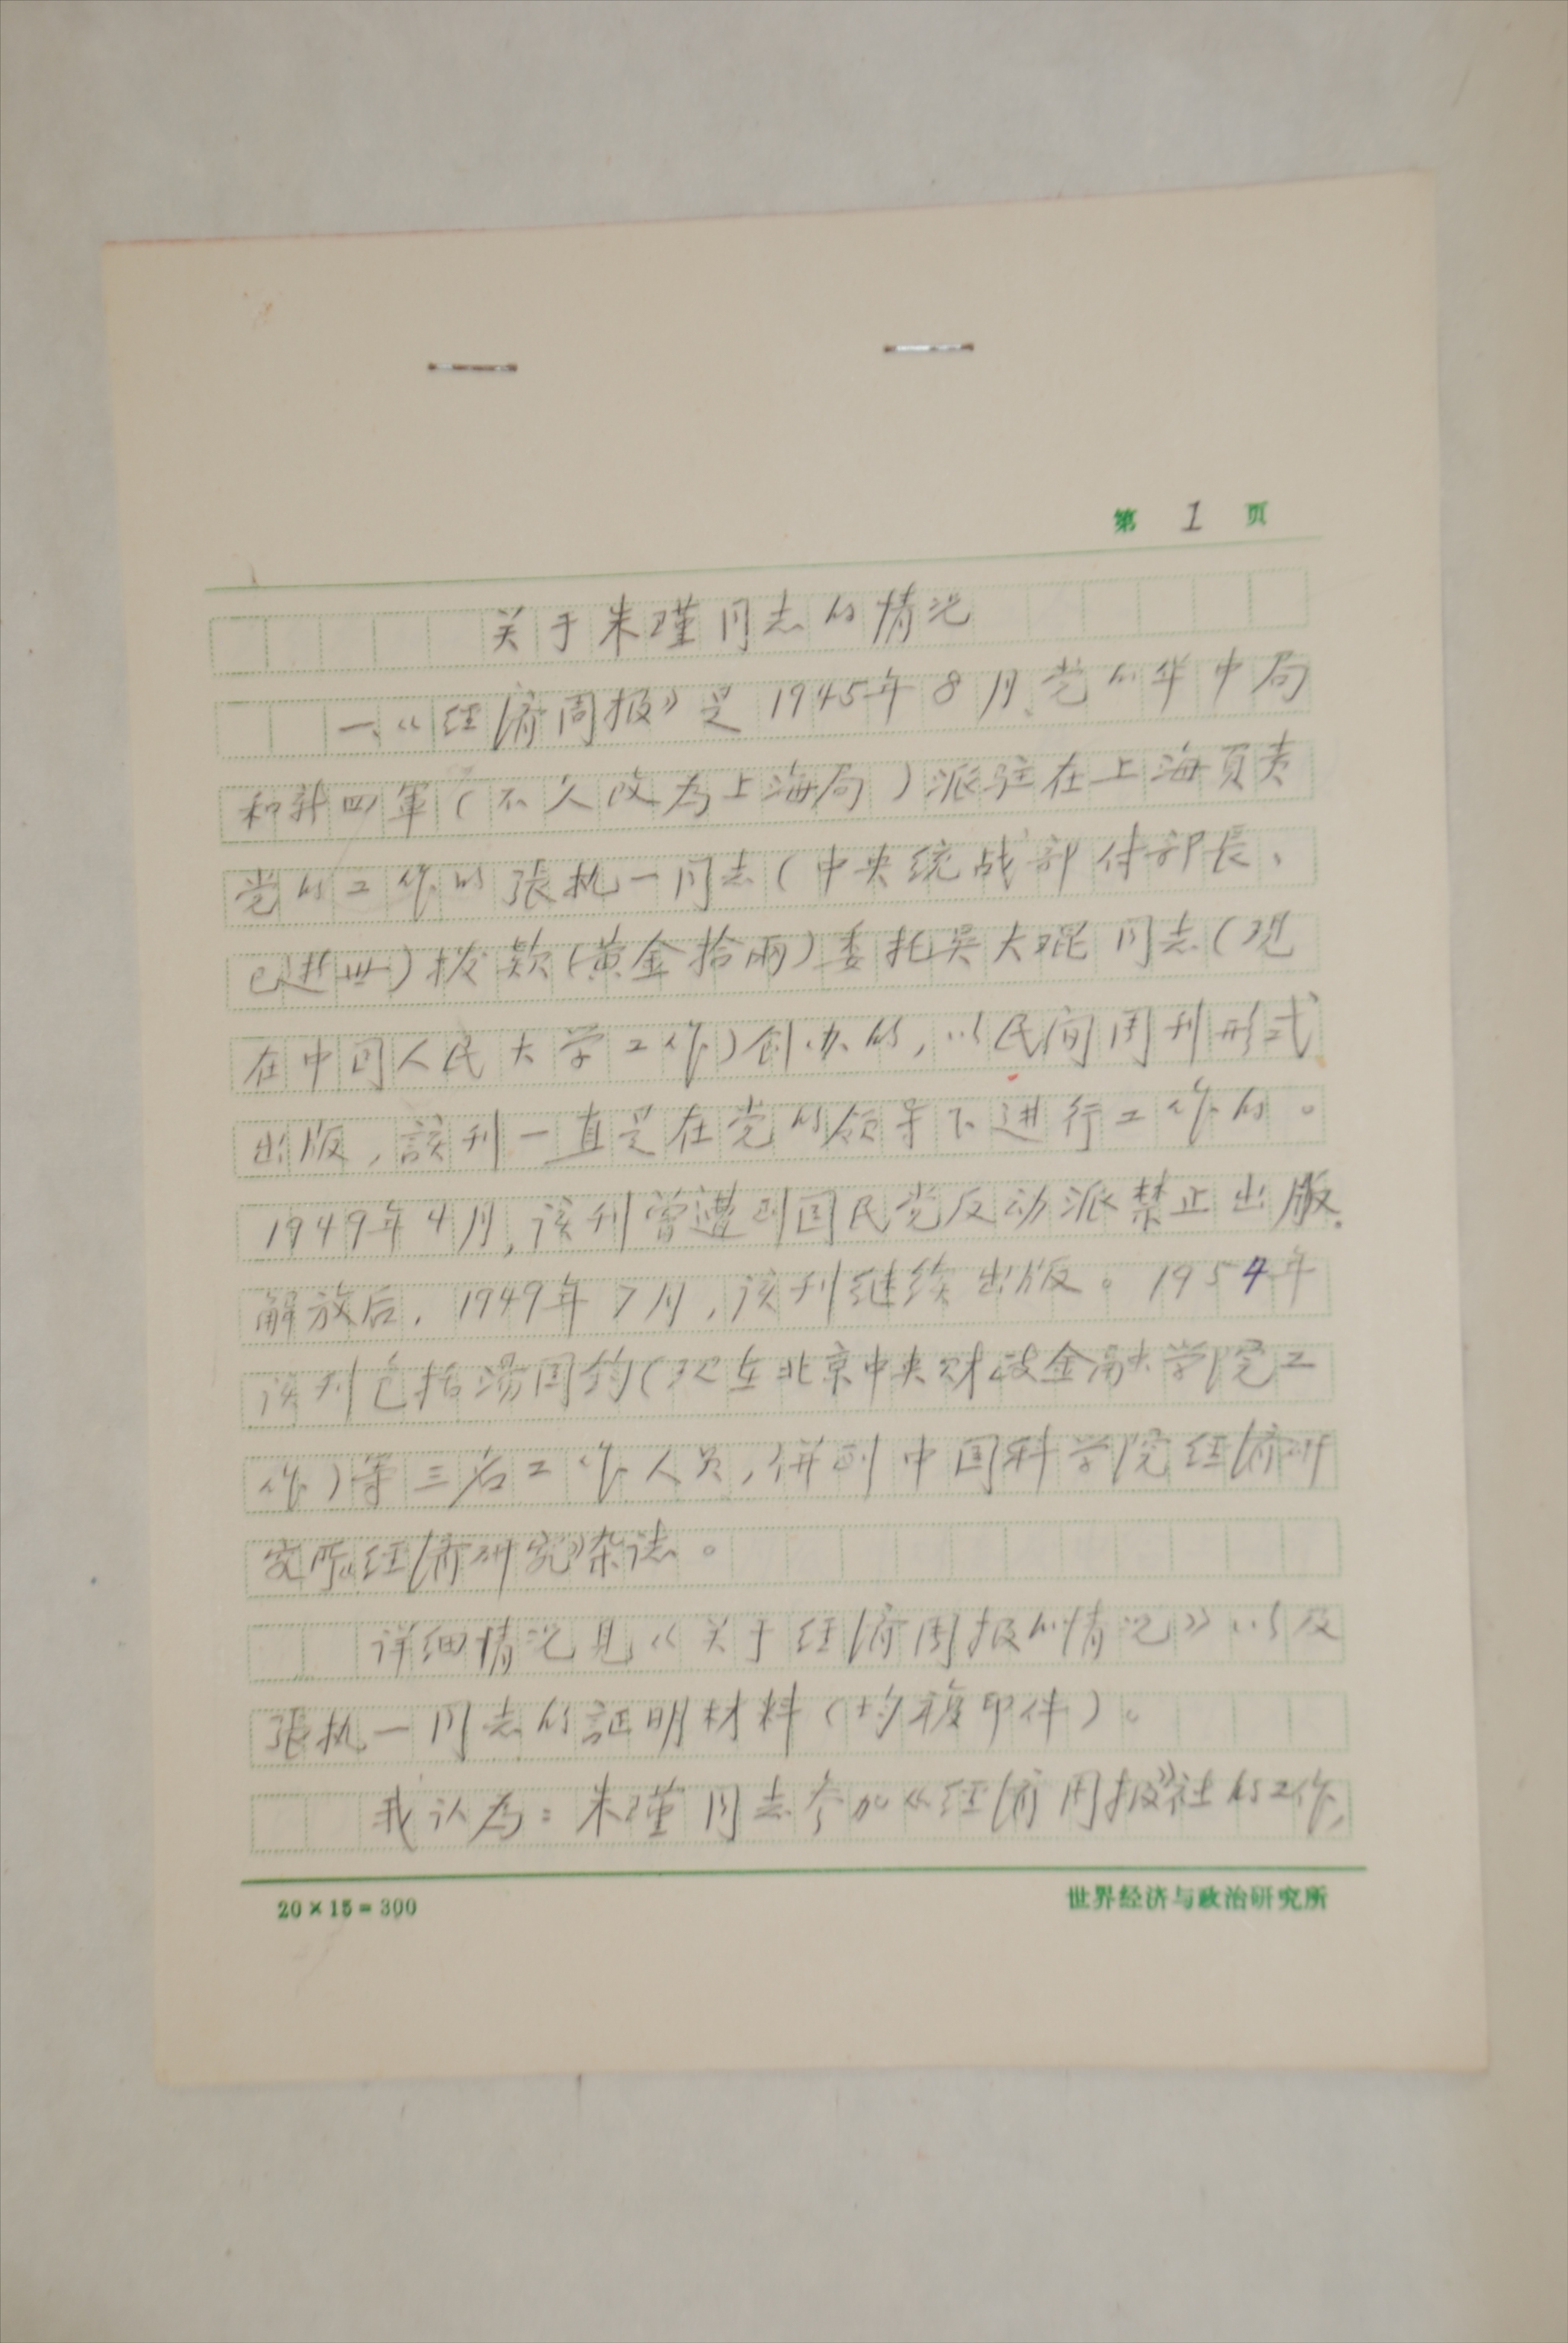 第 1 页
关于朱瑾同志的情况
一、《经济周报》是1945年8月,党的华中局
和新四軍(不久改为上海局)派驻在上海负责
党的工作的張执一同志(中央统战部付部長、
已逝世)拨款(黄金拾兩)委托吴大琨同志(现
在中国人民大学工作)创办的,以民间周刊形式
出版,該刊一直是在党的领导下进行工作的。
1949年4月,该刊曾遭到国民党反动派禁止出版.
解放后,1949年7月,该刊继续出版。1954年
该刊包括湯国钧(现在北京中央财政金融学院工
作)等三名工作人员,併到中国科学院经济研
究所《经济研究》杂誌。
详细情况见《关于经济周报的情况》以及
張执一同志的証明材料(均複印件)。
我认为:朱瑾同志参加《经济周报》社的工作,
20×15=300
世界经济与政治研究所